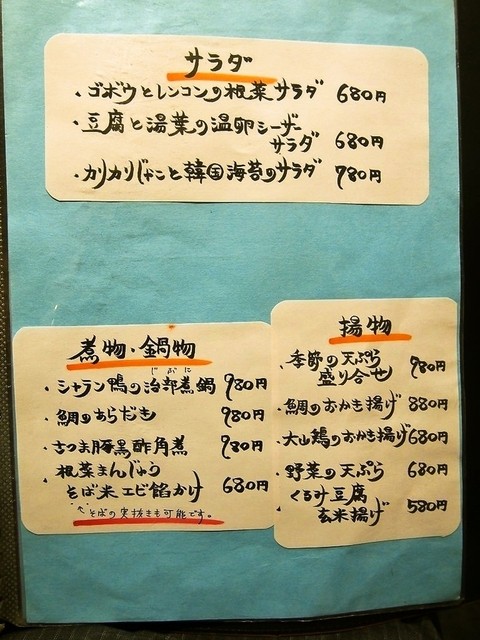 サラダ
・ゴボウとレンコンの根菜サラダ 680円
・豆腐と湯葉の温卵シーザー
サラダ 680円
・カリカリじゃこと韓国海苔のサラダ 780円
煮物・鍋物
じぶに
・シャラン鴨の治部煮鍋 980円
・鯛のあらだき 980円
・さつま豚黒酢角煮 980円
・根菜まんじゅう
そば米エビ餡かけ 680円
↑そばの実抜きも可能です。
揚物
・季節の天ぷら
盛り合せ 980円
・鯛のおかき揚げ 880円
・大山鶏のおかき揚げ 680円
・野菜の天ぷら 680円
・くるみ豆腐
玄米揚げ 580円